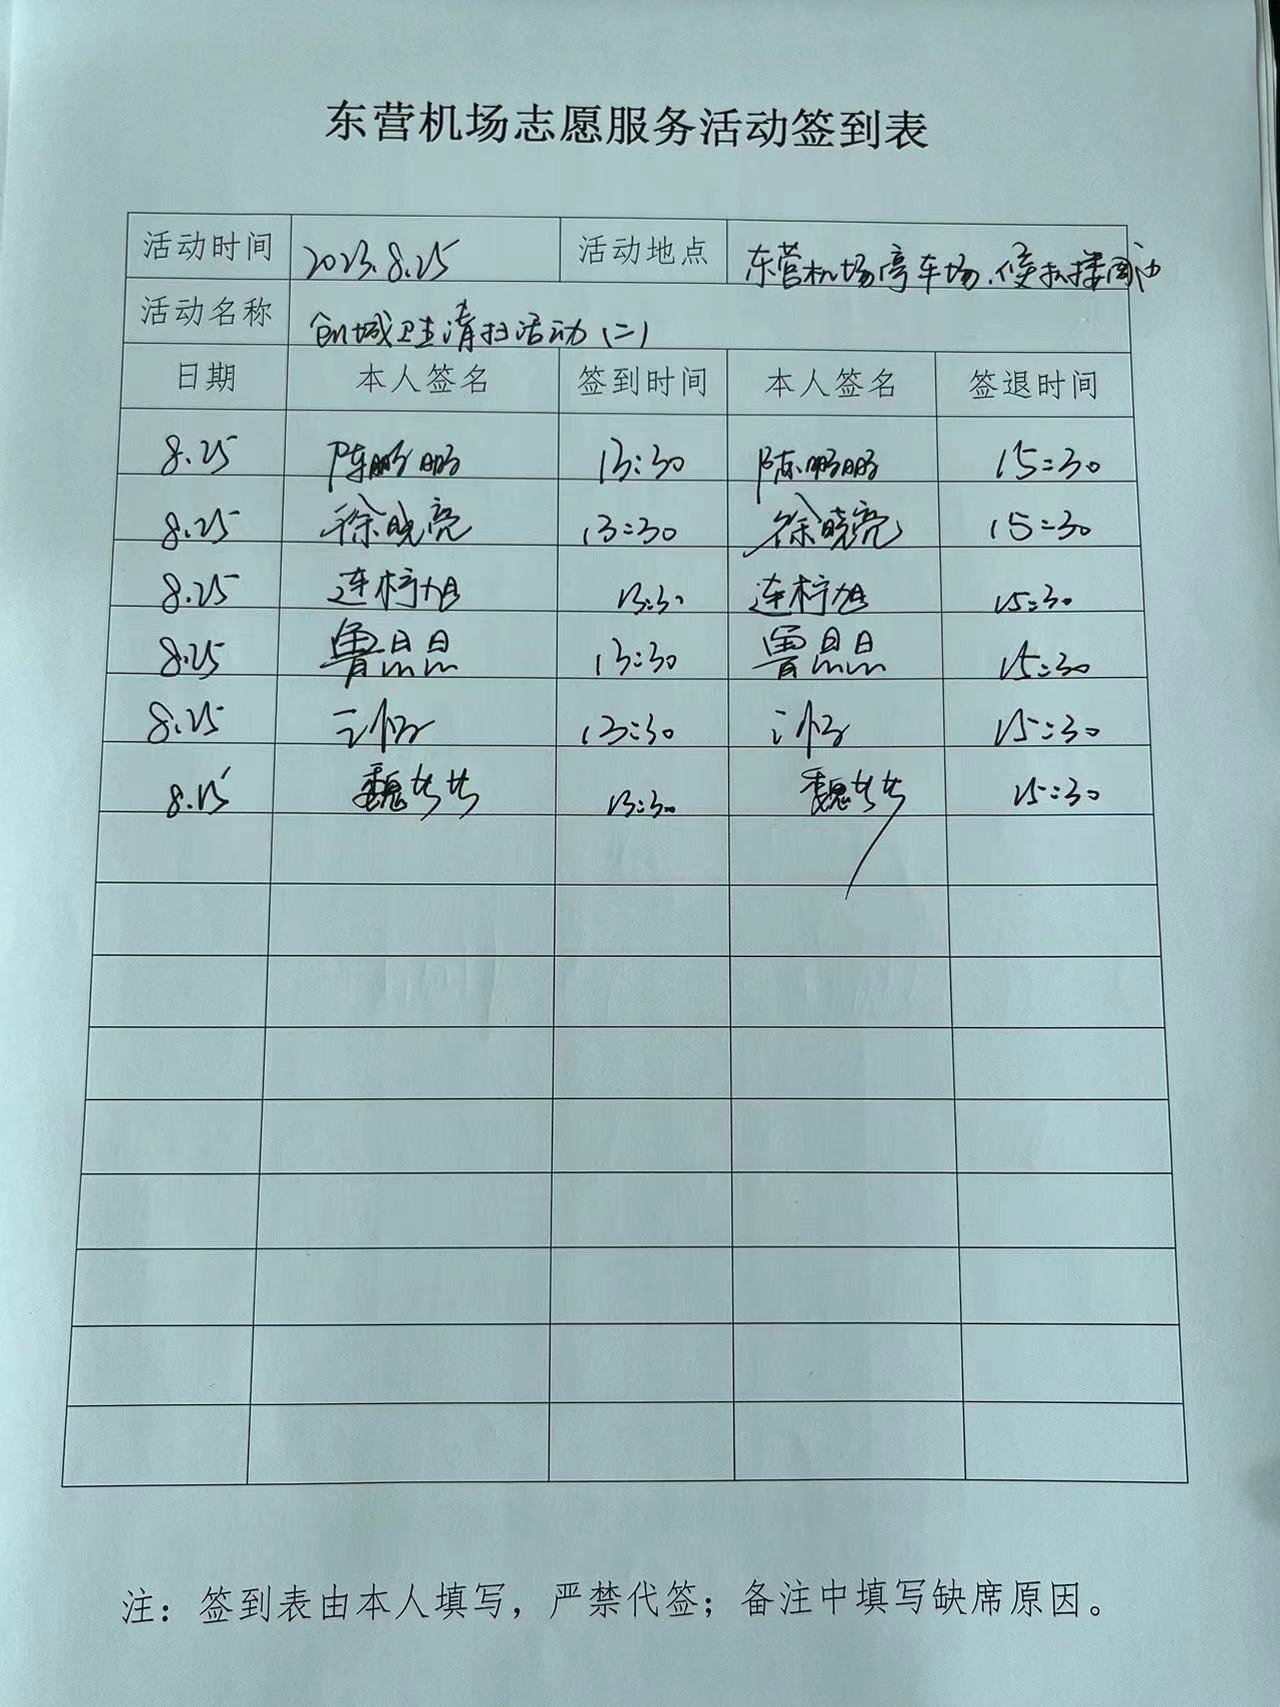 东营机场志愿服务活动签到表
活动时间 2023.8.25 活动地点 东营机场停车场、候机楼周边
活动名称 创城卫生清扫活动(二)
日期 本人签名 签到时间 本人签名 签退时间
8.25 陈鹏鹏 13:30 陈鹏鹏 15:30
8.25 徐晓亮 13:30 徐晓亮 15:30
8.25 连柠旭 13:30 连柠旭 15:30
8.25 鲁 13:30 鲁 15:30
8.25 13:30 15:30
8.25 魏 13:30 魏 15:30
注：签到表由本人填写，严禁代签；备注中填写缺席原因。